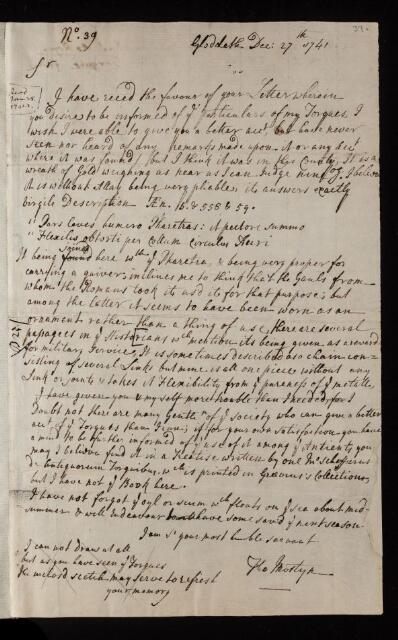 No. 39
39.
Gloddaeth Dec: 27th 1741
Sr
Read
I have reced the favour of your Letter wherein
you desire to be informed of ye particulars of my Torques. I
wish I were able to give you a better acct, but have never
seen nor heard of any remarks upon it or any
where it was found, but I think it was in this County, It is a
wreath of Gold weighing as near as I can Judge
it is without Allay being very pliable it answers exactly
Virgils Description Æn. 558 & 59.
"Pars laeves humero Pharetras: it pectore summo
"Flexilis obtorti per collum circulus Auri
It being joined here wth ye Pharetra, & being very proper for
carrying a quiver, inclines me to think that the Gauls from
whom the Romans took it us'd it for that purpose; but
among the latter it seems to have been worn as an
ornament rather than a thing of use, there are several
passages in ye Historians wch mention its being given as a reward
for military service, It is sometimes described as a chain con-
sisting of several Links but mine is all one piece without any
Link or Joints & takes it Flexibility from ye pureness of ye metall.
I have given you & my self more trouble than I need do for I
Doubt not there are many Gentln of ye Society who can give a better
acct of ye Torques than I can; if for your own satisfaction you have
a mind to be further informed of ye use of it among ye Antients you
may I believe find it in a Treatise written by one Mr Schefferus
de Antiquorum Torquibus, wch is printed in Graevius's Collections,
but I have not ye Book here.
I have not forgot ye oyl or scum wch floats on ye sea about mid-
summer & will endeavour to have some sav'd ye next season
I am Sr your most humble servant
Tho Mostyn
I can not draw at all
but as you have seen ye Torques
the sketch may serve to refresh
your memory